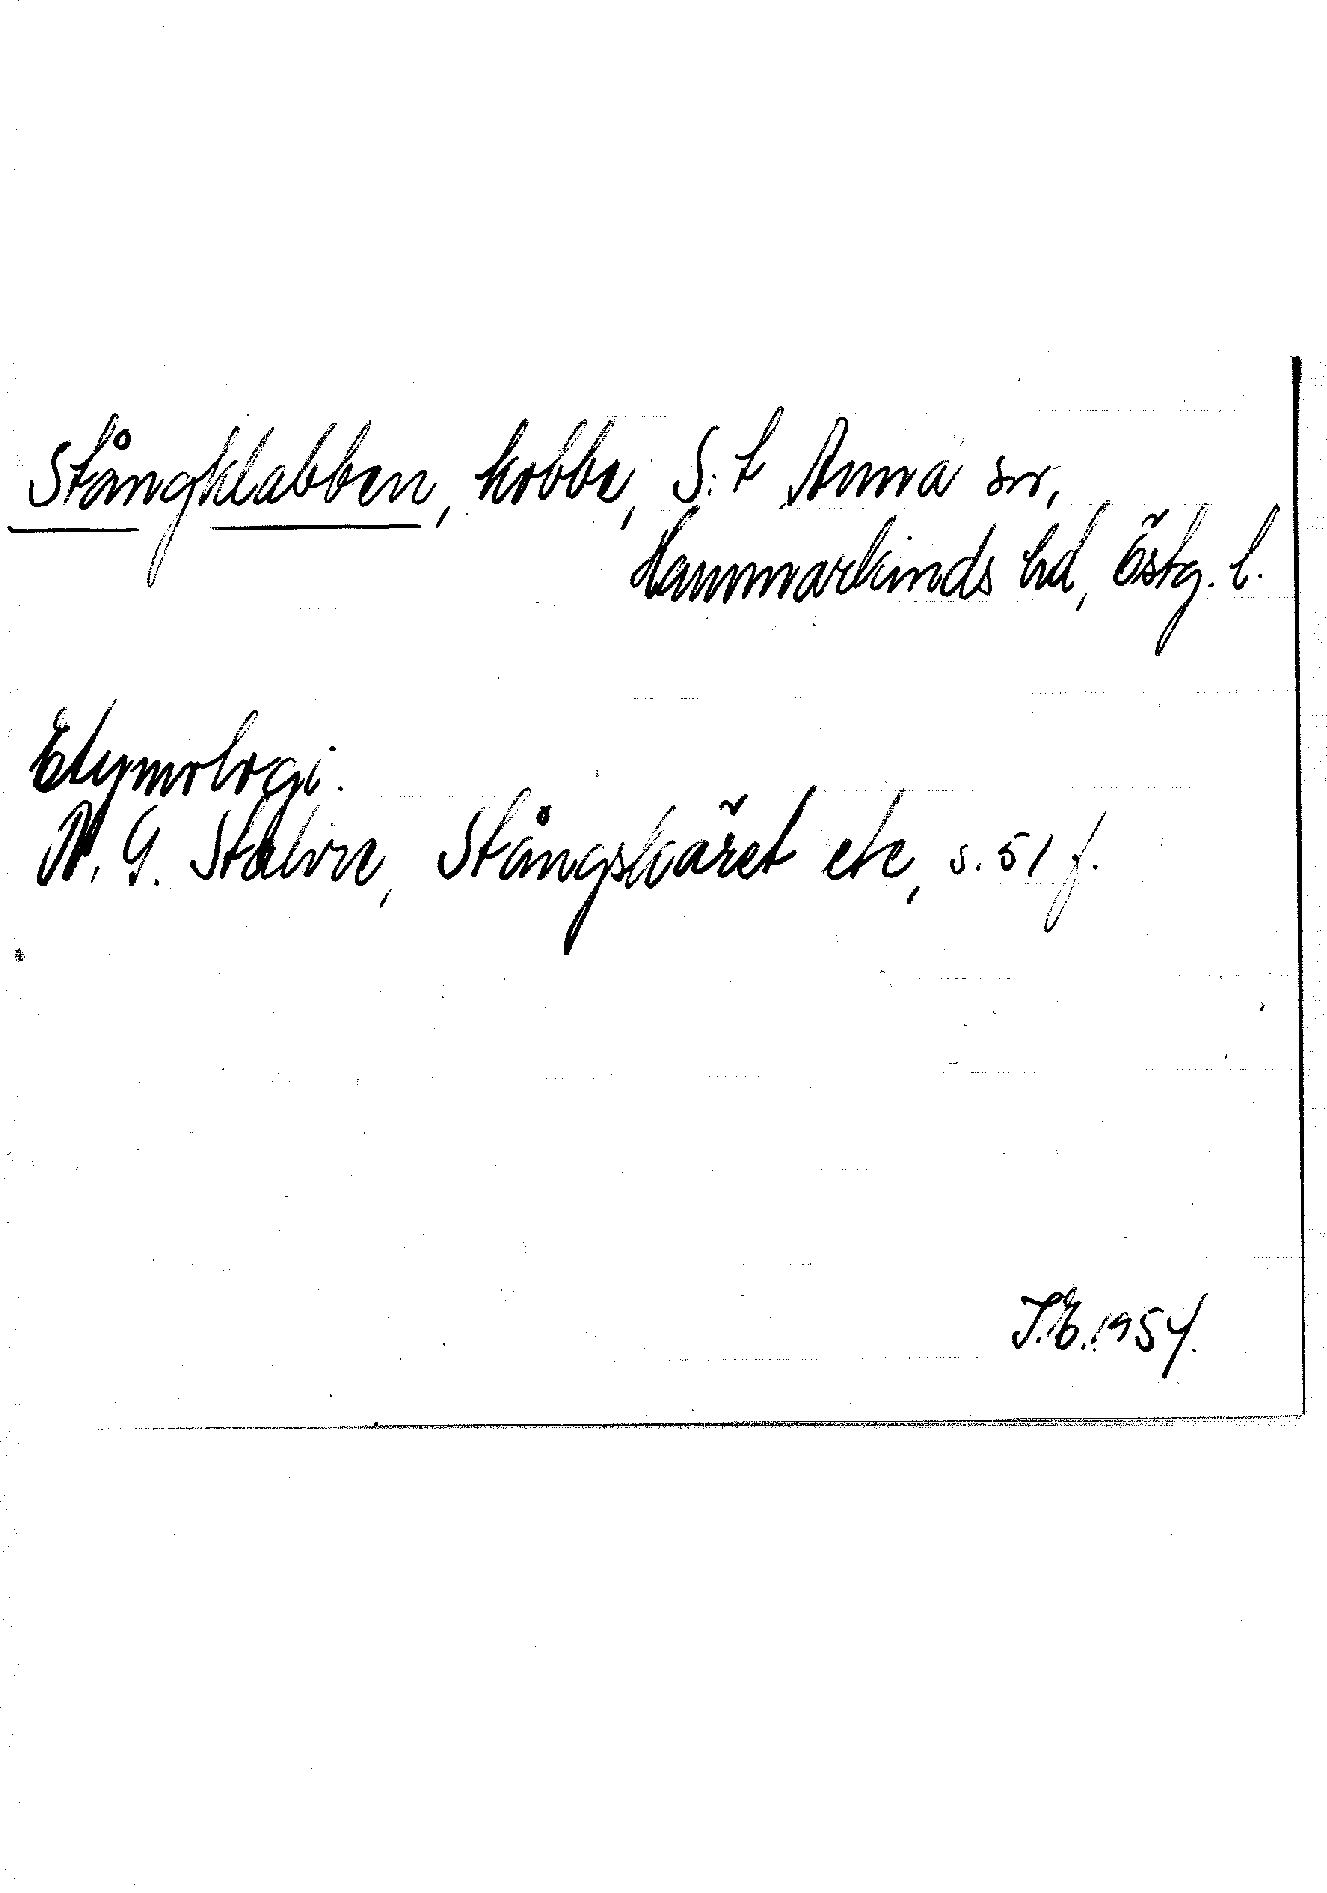 Stångklabben, kobbe, S:t Anna sn,
Hammarkinds hd, Östg. l.
Etymologi.
N. G. Stahre, Stångskäret etc, s. 51 f.
I.E. 1954.